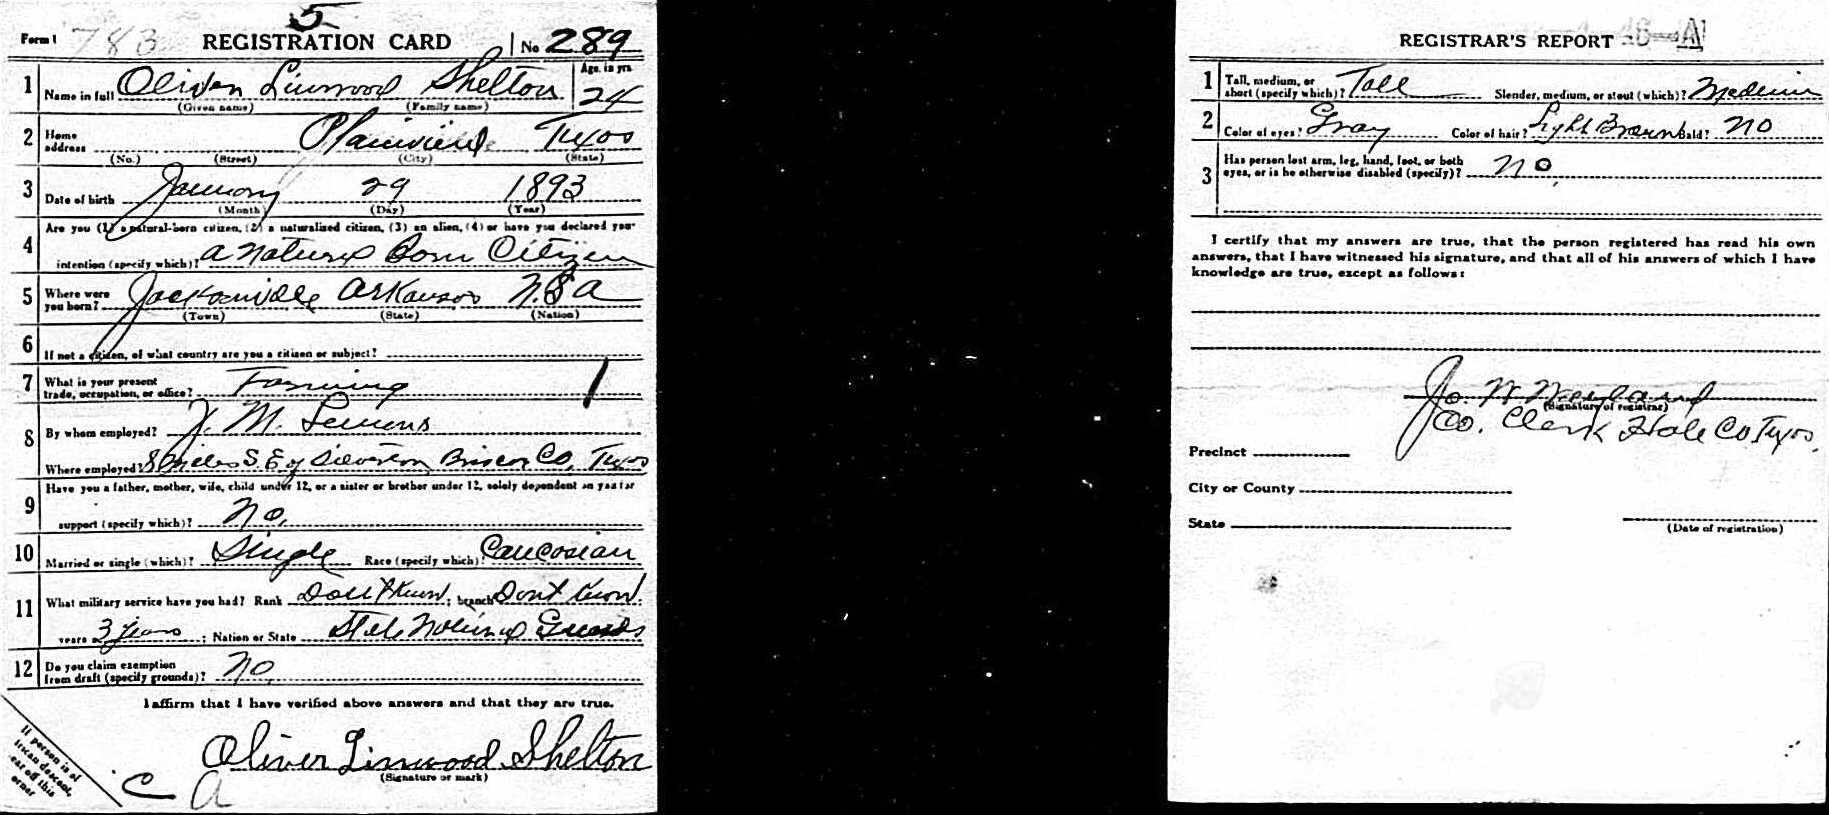 5
Form 1 783 REGISTRATION CARD No 289
Age, in yrs.
1 Name in full Oliver Linwood Shelton 24
(Given name) (Family name)
2 Home address Plainview Texas
(No.) (Street) (City) (State)
3 Date of birth January 29 1893
(Month) (Day) (Year)
4 Are you (1) a natural-born citizen, (2) a naturalized citizen, (3) an alien, (4) or have you declared your
intention (specify which)? a Natural Born Citizen
5 Where were you born? Jacksonville Arkansas U.S.A
(Town) (State) (Nation)
6 If not a citizen, of what country are you a citizen or subject?
7 What is your present trade, occupation, or office? Farming 1
8 By whom employed? J. M. Lemons
Where employed? 8 miles S.E of Silverton, Briscoe Co, Texas
9 Have you a father, mother, wife, child under 12, or a sister or brother under 12, solely dependent on you for
support (specify which)? No.
10 Married or single (which)? Single Race (specify which)? Caucasian
11 What military service have you had? Rank Don't Know; branch Dont Know;
years 3 years; Nation or State State National Guards
12 Do you claim exemption from draft (specify grounds)? No
I affirm that I have verified above answers and that they are true.
Oliver Linwood Shelton
(Signature or mark)
If person is of
African descent,
tear off this
corner
C A
REGISTRAR'S REPORT
1 Tall, medium, or short (specify which)? Tall Slender, medium, or stout (which)? Medium
2 Color of eyes? Gray Color of hair? Light Brown Bald? No
3 Has person lost arm, leg, hand, foot, or both eyes, or is he otherwise disabled (specify)? No
I certify that my answers are true, that the person registered has read his own
answers, that I have witnessed his signature, and that all of his answers of which I have
knowledge are true, except as follows:
Jo. W. Wayland
(Signature of registrar)
Co. Clerk Hale Co Texas.
Precinct
City or County
State
(Date of registration)